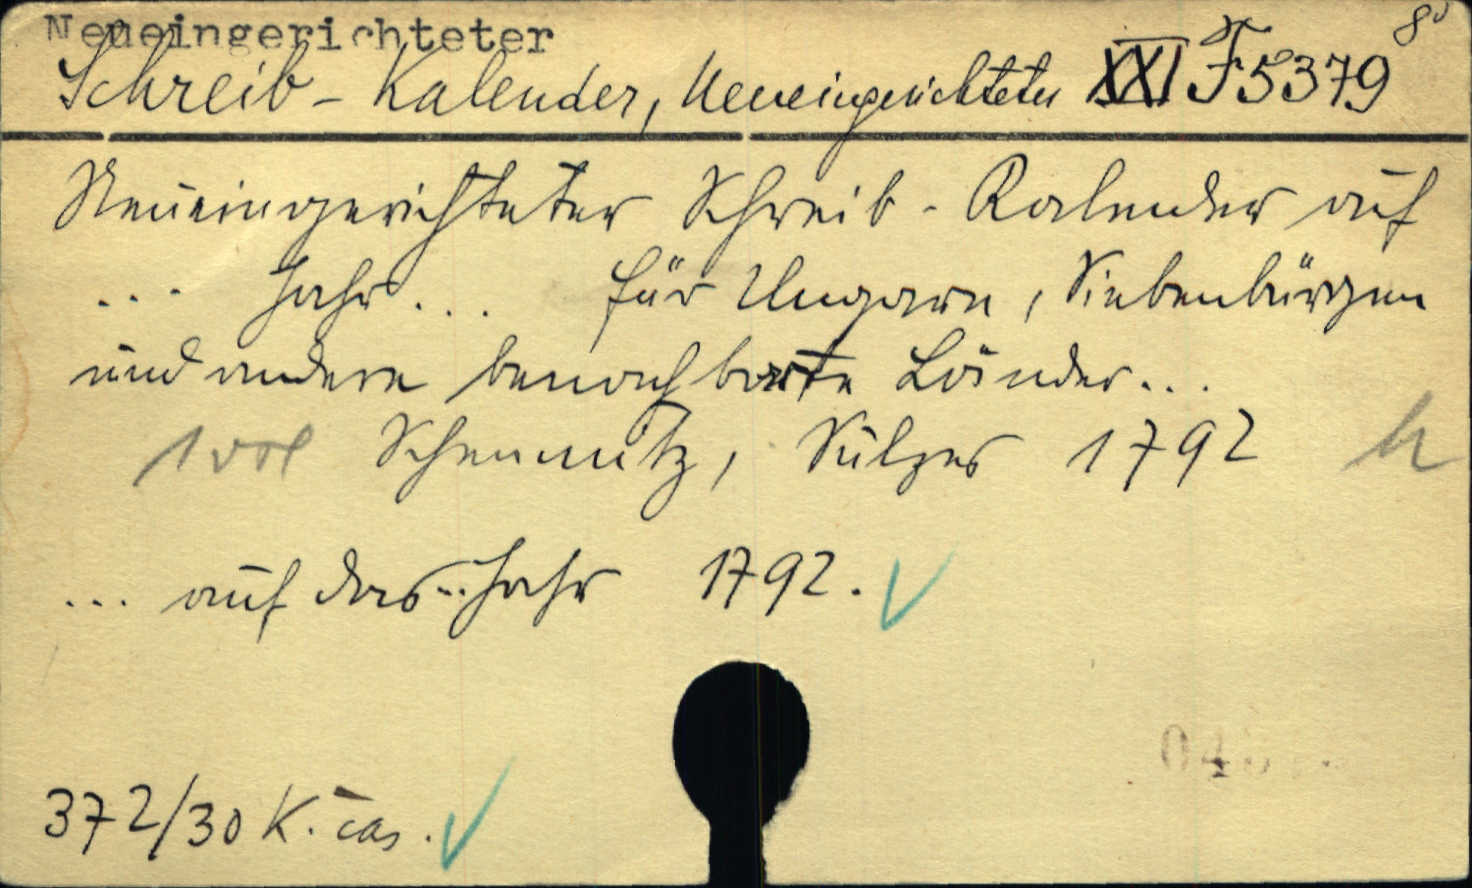 Neueingerichteter
8°
Schreib-Kalender, Neueingerichteter XXI F 5379
Neueingerichteter Schreib-Kalender auf
... Jahr... für Ungarn, Siebenbürgen
und andere benachbarte Länder...
1 vol Schemnitz, Sulzer 1792 h
... auf das.. Jahr 1792.
372/30 K. čas.